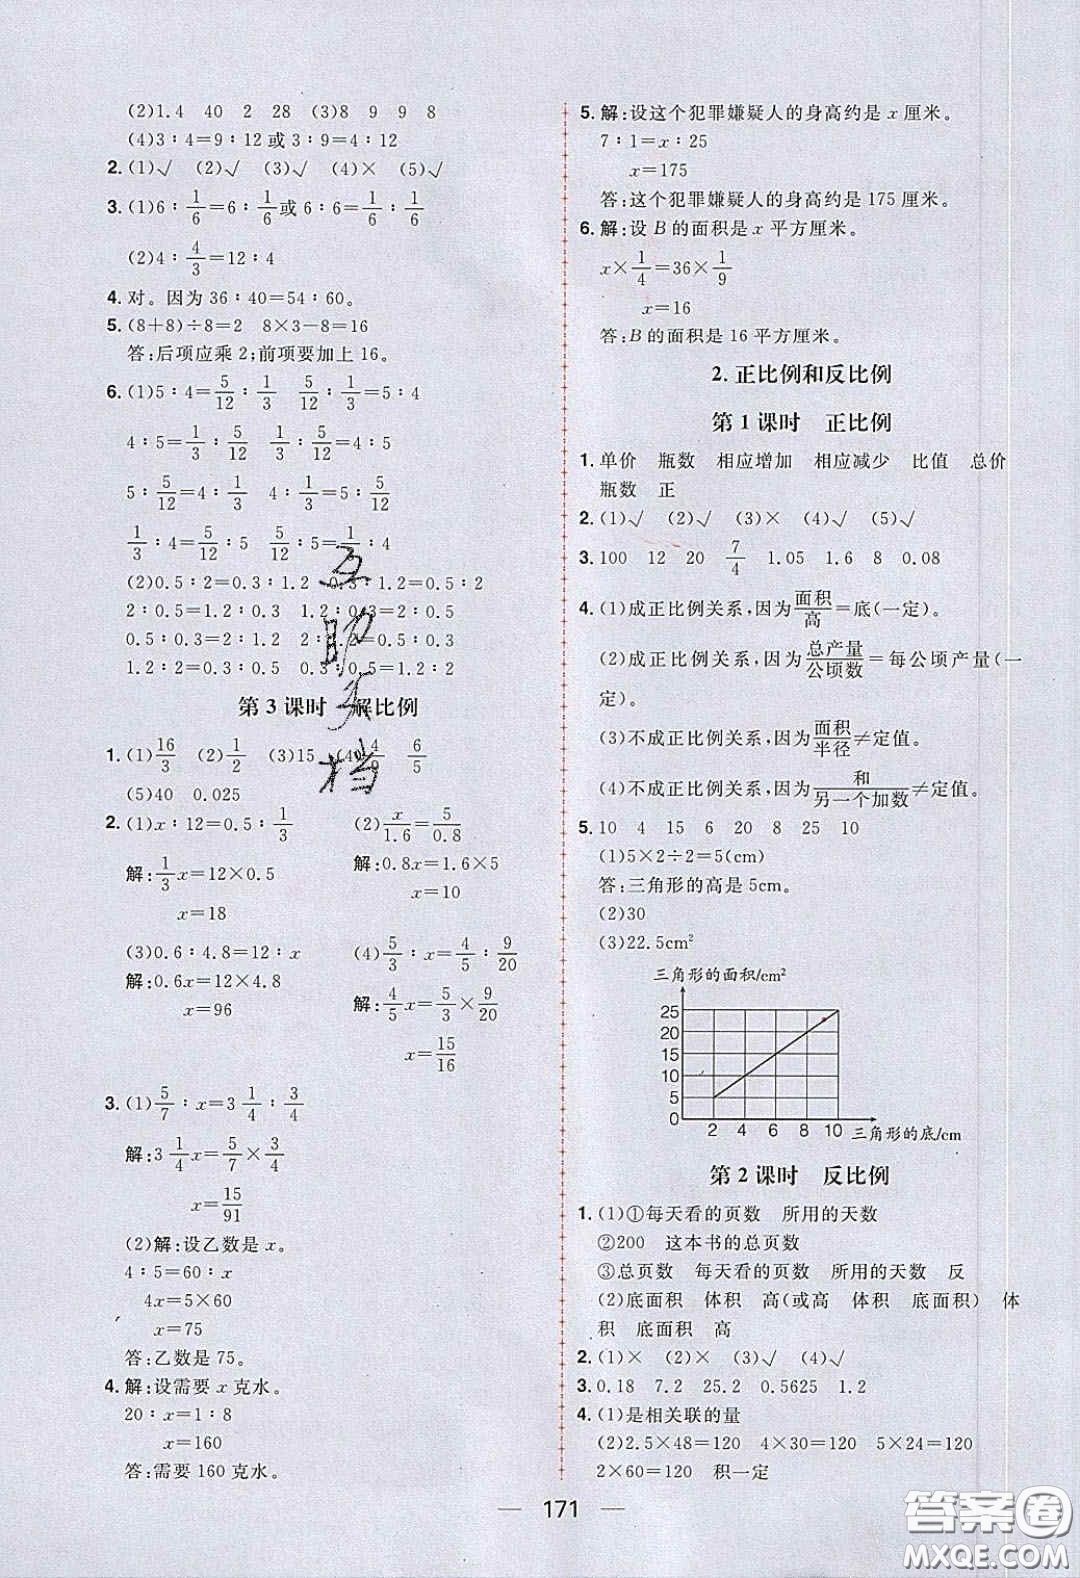 (2)1.4 40 2 28 (3)8 9 9 8
(4)3∶4=9∶12或3∶9=4∶12
2. (1)√ (2)√ (3)√ (4)× (5)√
3. (1)6∶1/6=6∶1/6或6∶6=1/6∶1/6
(2)4∶4/3=12∶4
4. 对。因为36∶40=54∶60。
5. (8+8)÷8=2 8×3-8=16
答:后项应乘2;前项要加上16。
6. (1)5∶4=5/12∶1/3 5/12∶1/3=5∶4
4∶5=1/3∶5/12 1/3∶5/12=4∶5
5∶5/12=4∶1/3 4∶1/3=5∶5/12
1/3∶4=5/12∶5 5/12∶5=1/3∶4
(2)0.5∶2=0.3∶1.2 0.3∶1.2=0.5∶2
2∶0.5=1.2∶0.3 1.2∶0.3=2∶0.5
0.5∶0.3=2∶1.2 2∶1.2=0.5∶0.3
1.2∶2=0.3∶0.5 0.3∶0.5=1.2∶2
第3课时 解比例
1. (1)16/3 (2)1/2 (3)15 (4)4/9 6/5
(5)40 0.025
2. (1)x∶12=0.5∶1/3 (2)x/1.6=5/0.8
解:1/3x=12×0.5 解:0.8x=1.6×5
x=18 x=10
(3)0.6∶4.8=12∶x (4)5/3∶x=4/5∶9/20
解:0.6x=12×4.8 解:4/5x=5/3×9/20
x=96 x=15/16
3. (1)5/7∶x=3 1/4∶3/4
解:3 1/4x=5/7×3/4
x=15/91
(2)解:设乙数是x。
4∶5=60∶x
4x=5×60
x=75
答:乙数是75。
4. 解:设需要x克水。
20∶x=1∶8
x=160
答:需要160克水。
5. 解:设这个犯罪嫌疑人的身高约是x厘米。
7∶1=x∶25
x=175
答:这个犯罪嫌疑人的身高约是175厘米。
6. 解:设B的面积是x平方厘米。
x×1/4=36×1/9
x=16
答:B的面积是16平方厘米。
2. 正比例和反比例
第1课时 正比例
1. 单价 瓶数 相应增加 相应减少 比值 总价
瓶数 正
2. (1)√ (2)√ (3)× (4)√ (5)√
3. 100 12 20 7/4 1.05 1.6 8 0.08
4. (1)成正比例关系,因为面积/高=底(一定)。
(2)成正比例关系,因为总产量/公顷数=每公顷产量(一
定)。
(3)不成正比例关系,因为面积/半径≠定值。
(4)不成正比例关系,因为和/另一个加数≠定值。
5. 10 4 15 6 20 8 25 10
(1)5×2÷2=5(cm)
答:三角形的高是5cm。
(2)30
(3)22.5cm²
三角形的面积/cm²
25
20
15
10
5
0
2 4 6 8 10 三角形的底/cm
第2课时 反比例
1. (1)①每天看的页数 所用的天数
②200 这本书的总页数
③总页数 每天看的页数 所用的天数 反
(2)底面积 体积 高(或高 体积 底面积) 体
积 底面积 高
2. (1)× (2)× (3)√ (4)√
3. 0.18 7.2 25.2 0.5625 1.2
4. (1)是相关联的量
(2)2.5×48=120 4×30=120 5×24=120
2×60=120 积一定
— 171 —
互助文档
答案卷
MXQE.COM